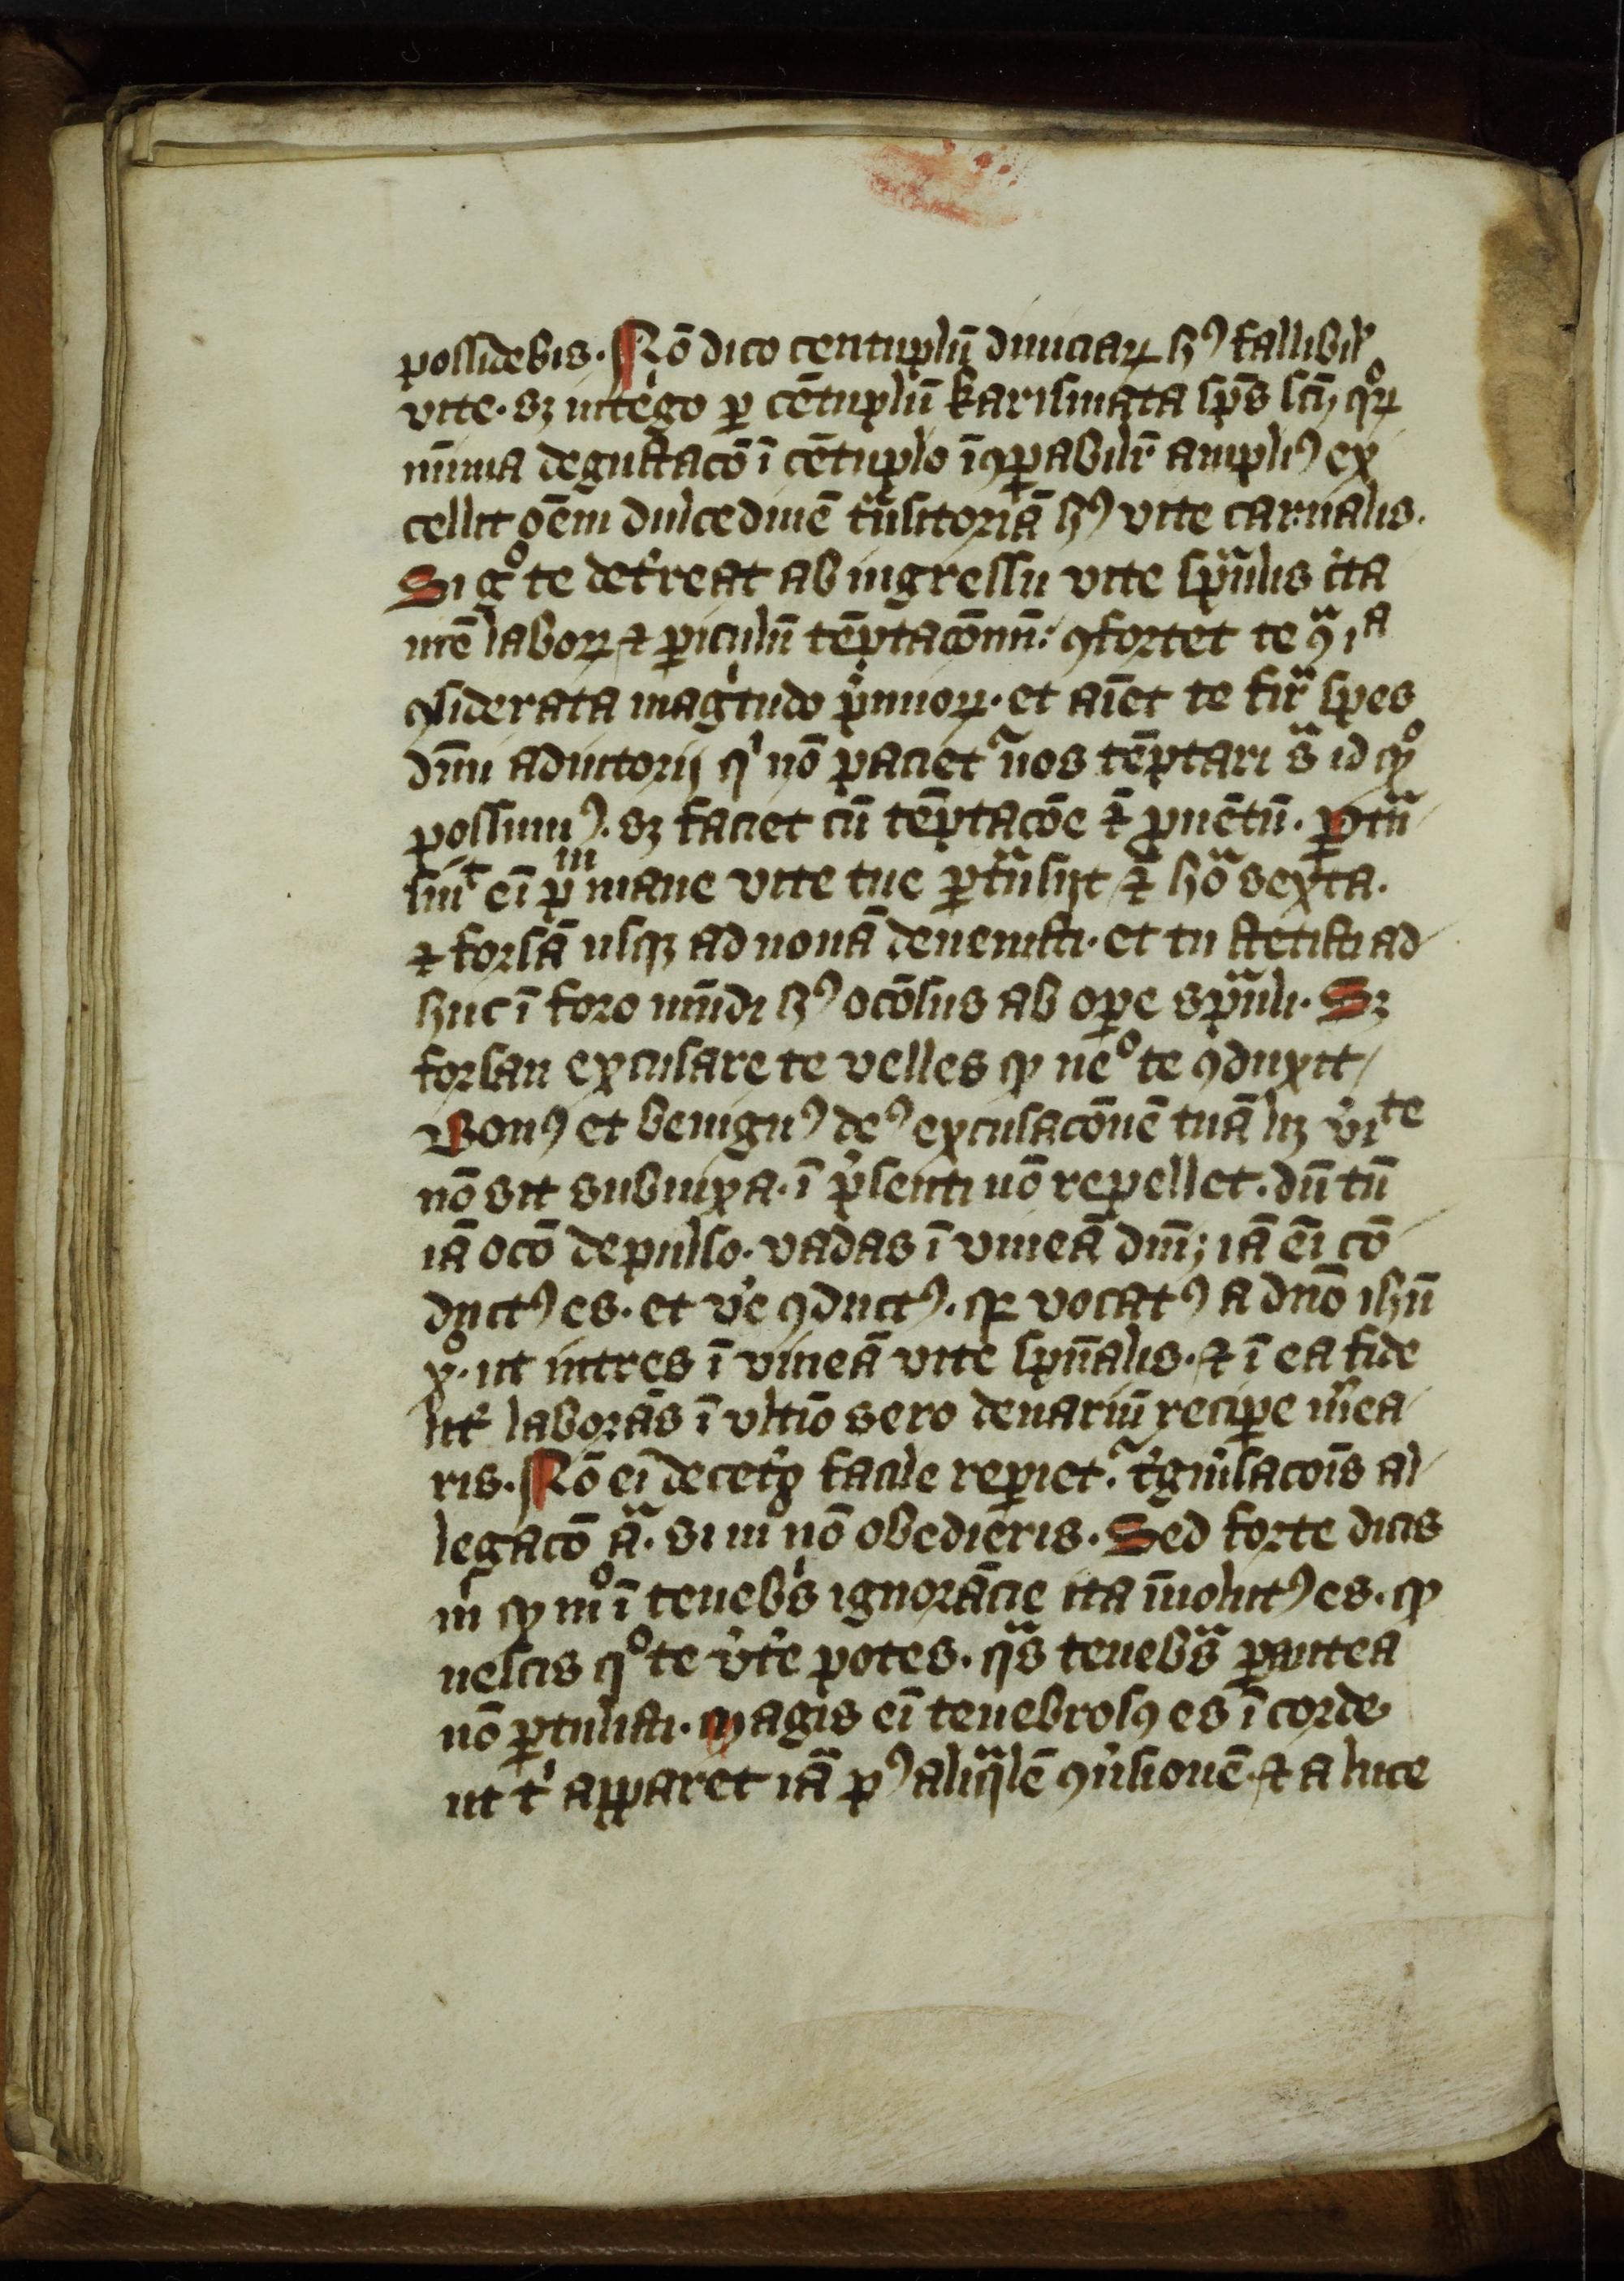 possidebis. Nō dico centuplū diuiciaꝝ hꝰ fallibilꝭ
vite. sꝫ intego ꝑ cētuplū karismata sp̄s sc̄i qͦꝝ
minima degustacō ī cētuplo īꝯꝑabilir ampliꝰ ex
cellit oēm dulcedinē tͣnsitoriā hꝰ vite carnalis.
Si gͦ te detreat ab ingressu vite spūalis ita
men labor ⁊ ꝑiculū tēptacōnum: ꝯfortet te ꝯᵗⁱᵃ
ꝯsiderata magͥtudo p̄mioꝝ. et aīet te firͣ spes
diuī adiutorij qͥ nō pacietᷣ nos tēptari sͣ id qͦ
possumꝰ. sꝫ faciet cū tēptacōe ⁊ ꝓuētū. ꝑtͣn
siit eī pᵐ mane vite tue ꝑtͣnsijt ⁊ hoͣ sexta.
⁊ forsā usqꝫ ad nonā deuenisti. et tu stetisti ad
huc ī foro mūdi hꝰ ocōsus ab oꝑe spūali. Sꝫ
forsan excusare te velles qꝫ neͦ te ꝯduxit
Bonꝰ et benignꝰ deꝰ excusacōnē tuā lꝫ viᵗᵉ
nō sit subnixa. ī p̄senti nō repellet. dū tū
iā ocō depulso. vadas ī vineā dn̄i; iā eī cō
ductꝰ es. et ve ꝯductꝰ. qꝛ vocatꝰ a dn̄o ihū
xͦ. ut intres ī vineā vite spūalis. ⁊ ī ea fide
lit laborās ī vltīo sero denariū reciꝑe mea
ris. Nō eī deceto facile reꝑietᷣ tͥguisacois al
legacō aͣ. si mͦ nō obedieris. Sed forte dicis
mͥ qꝫ mͦ ī tenebͥs ignorācie ita īuolutꝰ es. qꝫ
nescis qͦ te vͥte potes. qͣs tenebͣs ꝑ antea
nō ꝑtulisti. Magis eī tenebrosꝰ es ī corde
ut tͥ apparet iā pꝰ aliqͣlē ꝯuͥsionē ⁊ a luce